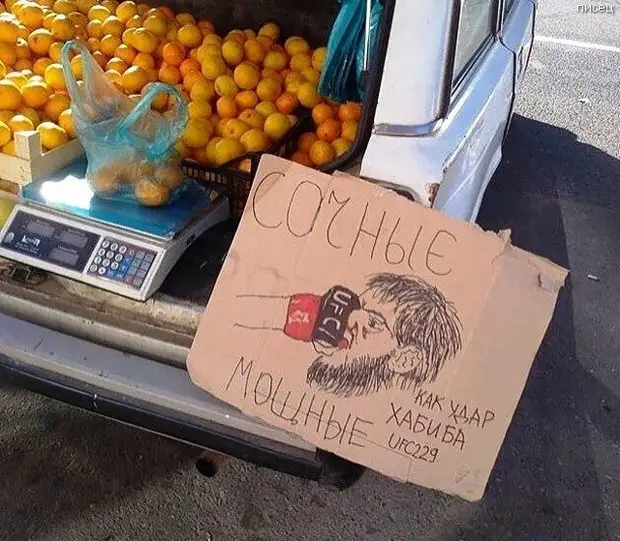 писец
СОЧНЫЕ
UFC
МОЩНЫЕ
КАК УДАР
ХАБИБА
UFC229